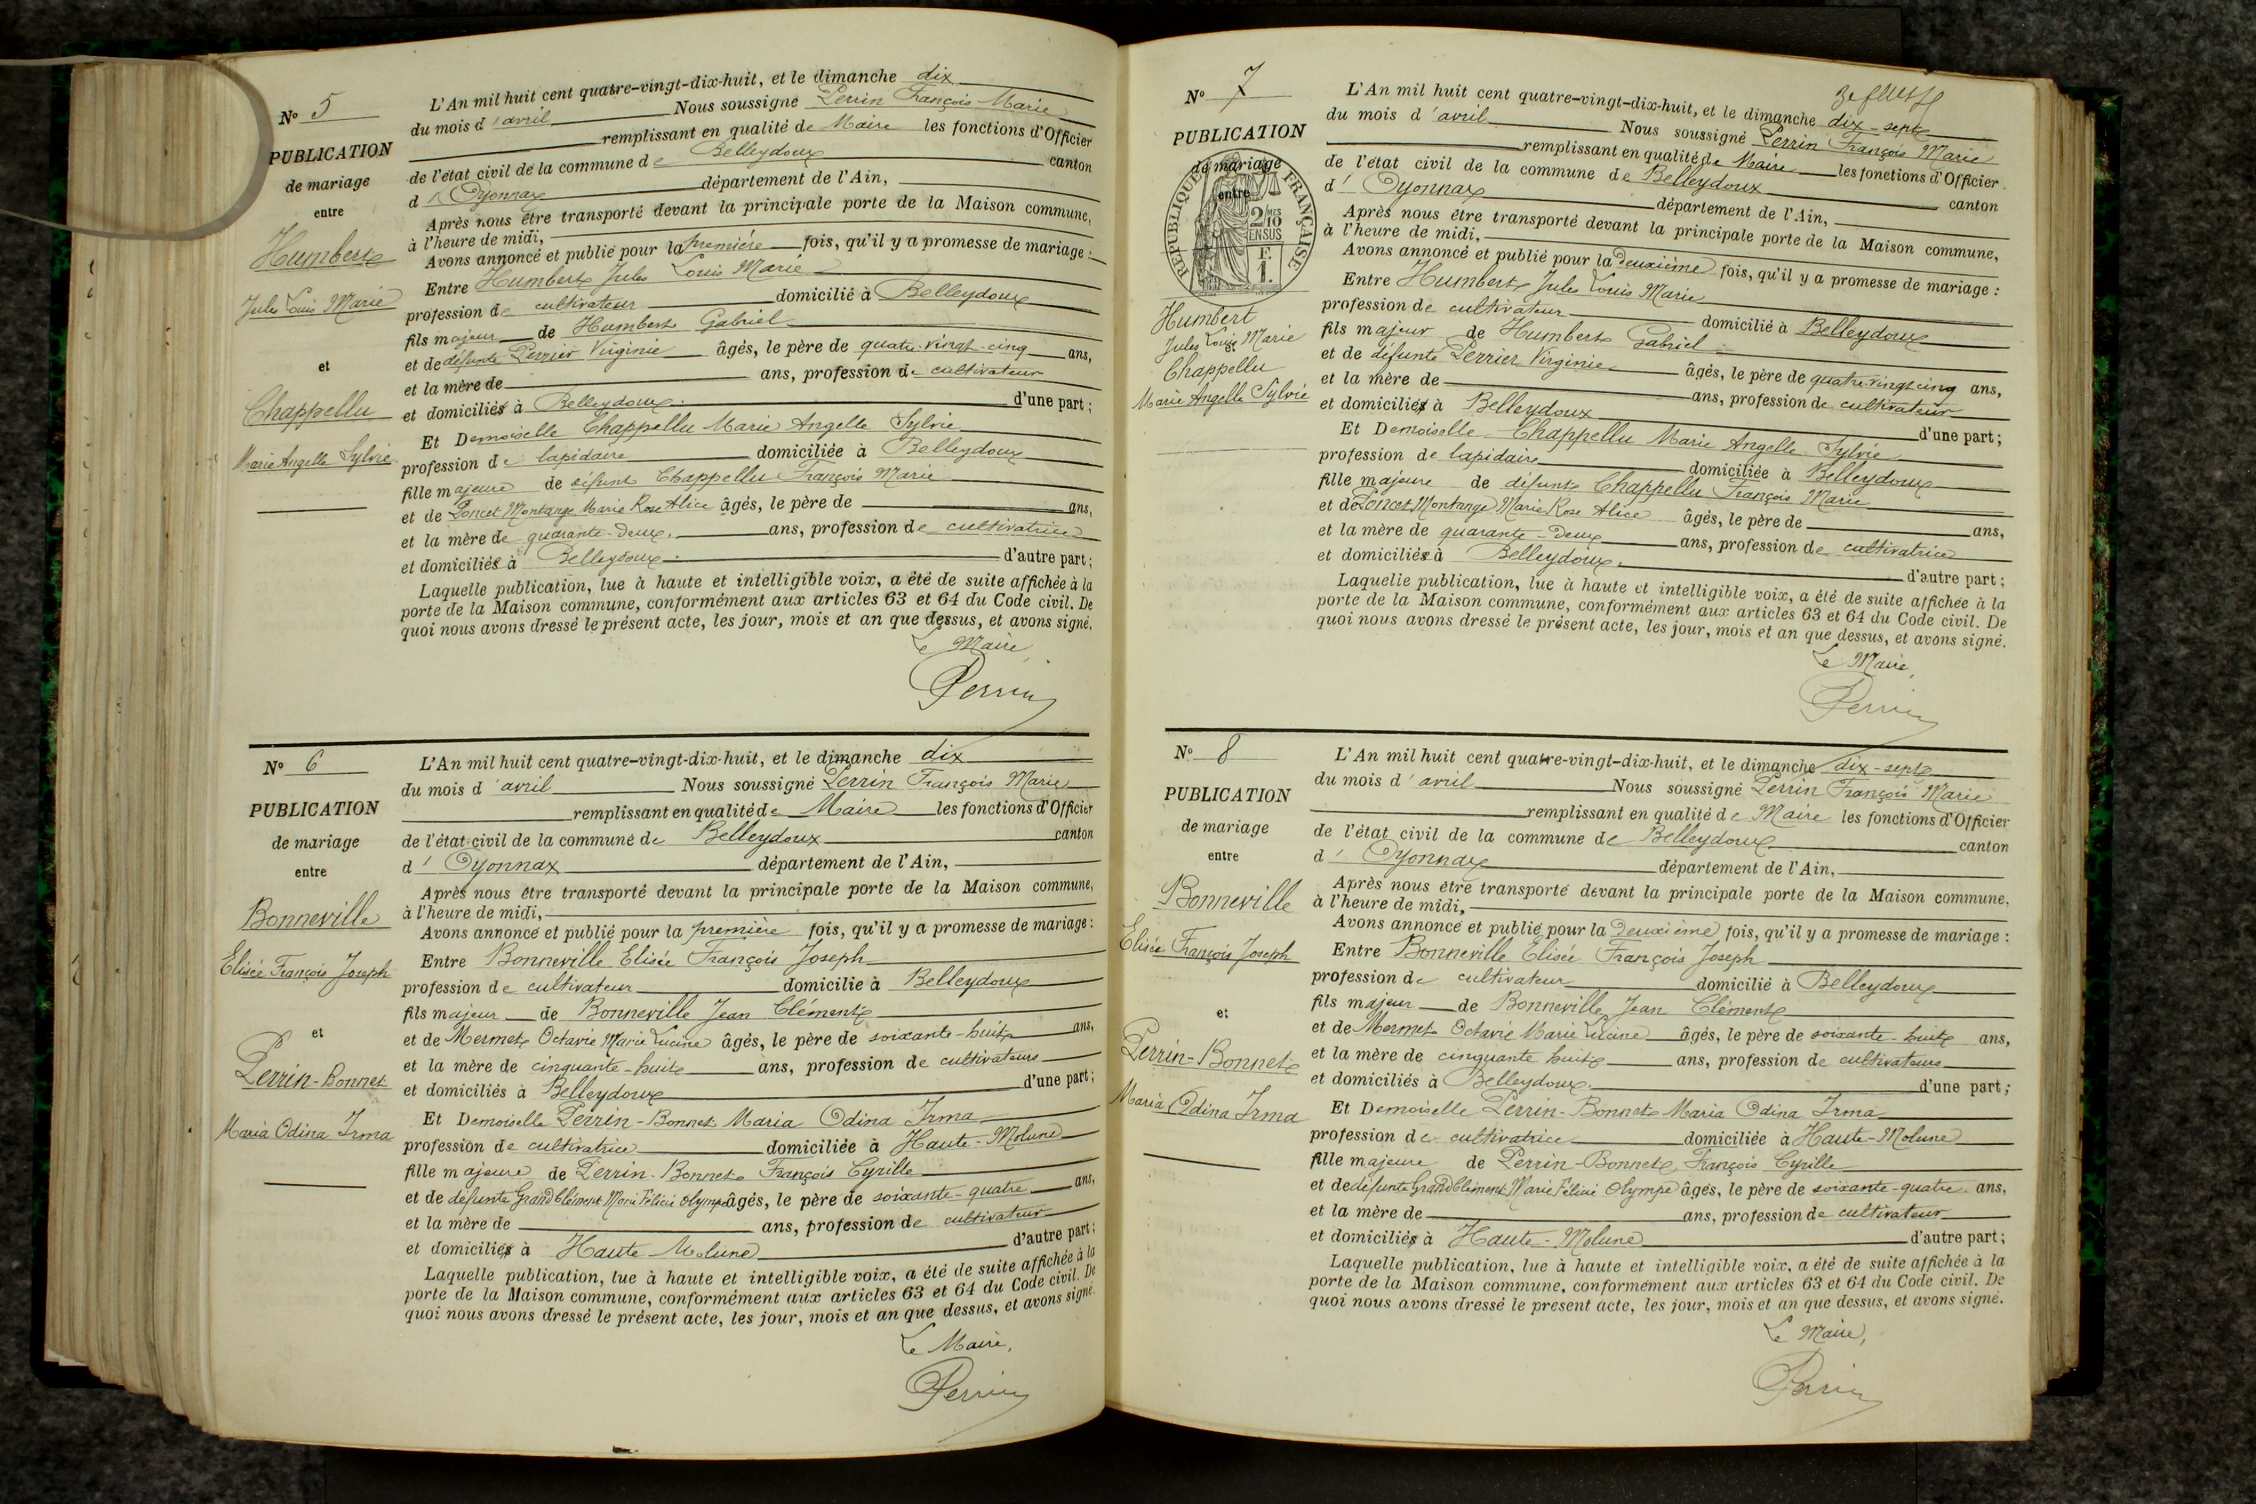 Nº 5
PUBLICATION
de mariage
entre
Humbert
Jules Louis Marie
et
Chappellu
Marie Angelle Sylvie
L'An mil huit cent quatre-vingt-dix-huit, et le dimanche dix
du mois d'avril Nous soussigné Perrin François Marie
remplissant en qualité de Maire les fonctions d'Officier
de l'état civil de la commune de Belleydoux canton
d'Oyonnax département de l'Ain,
Après nous être transporté devant la principale porte de la Maison commune,
à l'heure de midi,
Avons annoncé et publié pour la première fois, qu'il y a promesse de mariage :
Entre Humbert Jules Louis Marie
profession de cultivateur domicilié à Belleydoux
fils majeur de Humbert Gabriel
et de défunte Perrier Virginie âgés, le père de quatre-vingt-cinq ans,
et la mère de ans, profession de cultivateur
et domiciliés à Belleydoux d'une part ;
Et Demoiselle Chappellu Marie Angelle Sylvie
profession de lapidaire domiciliée à Belleydoux
fille majeure de défunt Chappellu François Marie
et de Poncet Montange Marie Rose Alice âgés, le père de ans,
et la mère de quarante-deux ans, profession de cultivatrice
et domiciliés à Belleydoux d'autre part ;
Laquelle publication, lue à haute et intelligible voix, a été de suite affichée à la
porte de la Maison commune, conformément aux articles 63 et 64 du Code civil. De
quoi nous avons dressé le présent acte, les jour, mois et an que dessus, et avons signé.
Le Maire,
Perrin
Nº 6
PUBLICATION
de mariage
entre
Bonneville
Elisée François Joseph
et
Perrin-Bonnet
Maria Odina Irma
L'An mil huit cent quatre-vingt-dix-huit, et le dimanche dix
du mois d'avril Nous soussigné Perrin François Marie
remplissant en qualité de Maire les fonctions d'Officier
de l'état civil de la commune de Belleydoux canton
d'Oyonnax département de l'Ain,
Après nous être transporté devant la principale porte de la Maison commune,
à l'heure de midi,
Avons annoncé et publié pour la première fois, qu'il y a promesse de mariage :
Entre Bonneville Elisée François Joseph
profession de cultivateur domicilié à Belleydoux
fils majeur de Bonneville Jean Clément
et de Mermet Octavie Marie Lucine âgés, le père de soixante-huit ans,
et la mère de cinquante-huit ans, profession de cultivateurs
et domiciliés à Belleydoux d'une part ;
Et Demoiselle Perrin-Bonnet Maria Odina Irma
profession de cultivatrice domiciliée à Haute-Molune
fille majeure de Perrin-Bonnet François Cyrille
et de défunte Grandclément Marie Félicie Olympe âgés, le père de soixante-quatre ans,
et la mère de ans, profession de cultivateur
et domiciliés à Haute-Molune d'autre part ;
Laquelle publication, lue à haute et intelligible voix, a été de suite affichée à la
porte de la Maison commune, conformément aux articles 63 et 64 du Code civil. De
quoi nous avons dressé le présent acte, les jour, mois et an que dessus, et avons signé.
Le Maire,
Perrin
Nº 7
PUBLICATION
de mariage
entre
RÉPUBLIQUE FRANÇAISE
2/10 EN SUS
F. 1.
Humbert
Jules Louis Marie
Chappellu
Marie Angelle Sylvie
L'An mil huit cent quatre-vingt-dix-huit, et le dimanche dix-sept
du mois d'avril Nous soussigné Perrin François Marie
remplissant en qualité de Maire les fonctions d'Officier
de l'état civil de la commune de Belleydoux canton
d'Oyonnax département de l'Ain,
Après nous être transporté devant la principale porte de la Maison commune,
à l'heure de midi,
Avons annoncé et publié pour la deuxième fois, qu'il y a promesse de mariage :
Entre Humbert Jules Louis Marie
profession de cultivateur domicilié à Belleydoux
fils majeur de Humbert Gabriel
et de défunte Perrier Virginie âgés, le père de quatre-vingt-cinq ans,
et la mère de ans, profession de cultivateur
et domiciliés à Belleydoux d'une part ;
Et Demoiselle Chappellu Marie Angelle Sylvie
profession de lapidaire domiciliée à Belleydoux
fille majeure de défunt Chappellu François Marie
et de Poncet Montange Marie Rose Alice âgés, le père de ans,
et la mère de quarante-deux ans, profession de cultivatrice
et domiciliés à Belleydoux d'autre part ;
Laquelle publication, lue à haute et intelligible voix, a été de suite affichée à la
porte de la Maison commune, conformément aux articles 63 et 64 du Code civil. De
quoi nous avons dressé le présent acte, les jour, mois et an que dessus, et avons signé.
Le Maire,
Perrin
Nº 8
PUBLICATION
de mariage
entre
Bonneville
Elisée François Joseph
et
Perrin-Bonnet
Maria Odina Irma
L'An mil huit cent quatre-vingt-dix-huit, et le dimanche dix-sept
du mois d'avril Nous soussigné Perrin François Marie
remplissant en qualité de Maire les fonctions d'Officier
de l'état civil de la commune de Belleydoux canton
d'Oyonnax département de l'Ain,
Après nous être transporté devant la principale porte de la Maison commune,
à l'heure de midi,
Avons annoncé et publié pour la deuxième fois, qu'il y a promesse de mariage :
Entre Bonneville Elisée François Joseph
profession de cultivateur domicilié à Belleydoux
fils majeur de Bonneville Jean Clément
et de Mermet Octavie Marie Lucine âgés, le père de soixante-huit ans,
et la mère de cinquante huit ans, profession de cultivateurs
et domiciliés à Belleydoux d'une part ;
Et Demoiselle Perrin-Bonnet Maria Odina Irma
profession de cultivatrice domiciliée à Haute-Molune
fille majeure de Perrin-Bonnet François Cyrille
et de défunte Grandclément Marie Félicie Olympe âgés, le père de soixante-quatre ans,
et la mère de ans, profession de cultivateur
et domiciliés à Haute-Molune d'autre part ;
Laquelle publication, lue à haute et intelligible voix, a été de suite affichée à la
porte de la Maison commune, conformément aux articles 63 et 64 du Code civil. De
quoi nous avons dressé le présent acte, les jour, mois et an que dessus, et avons signé.
Le Maire,
Perrin